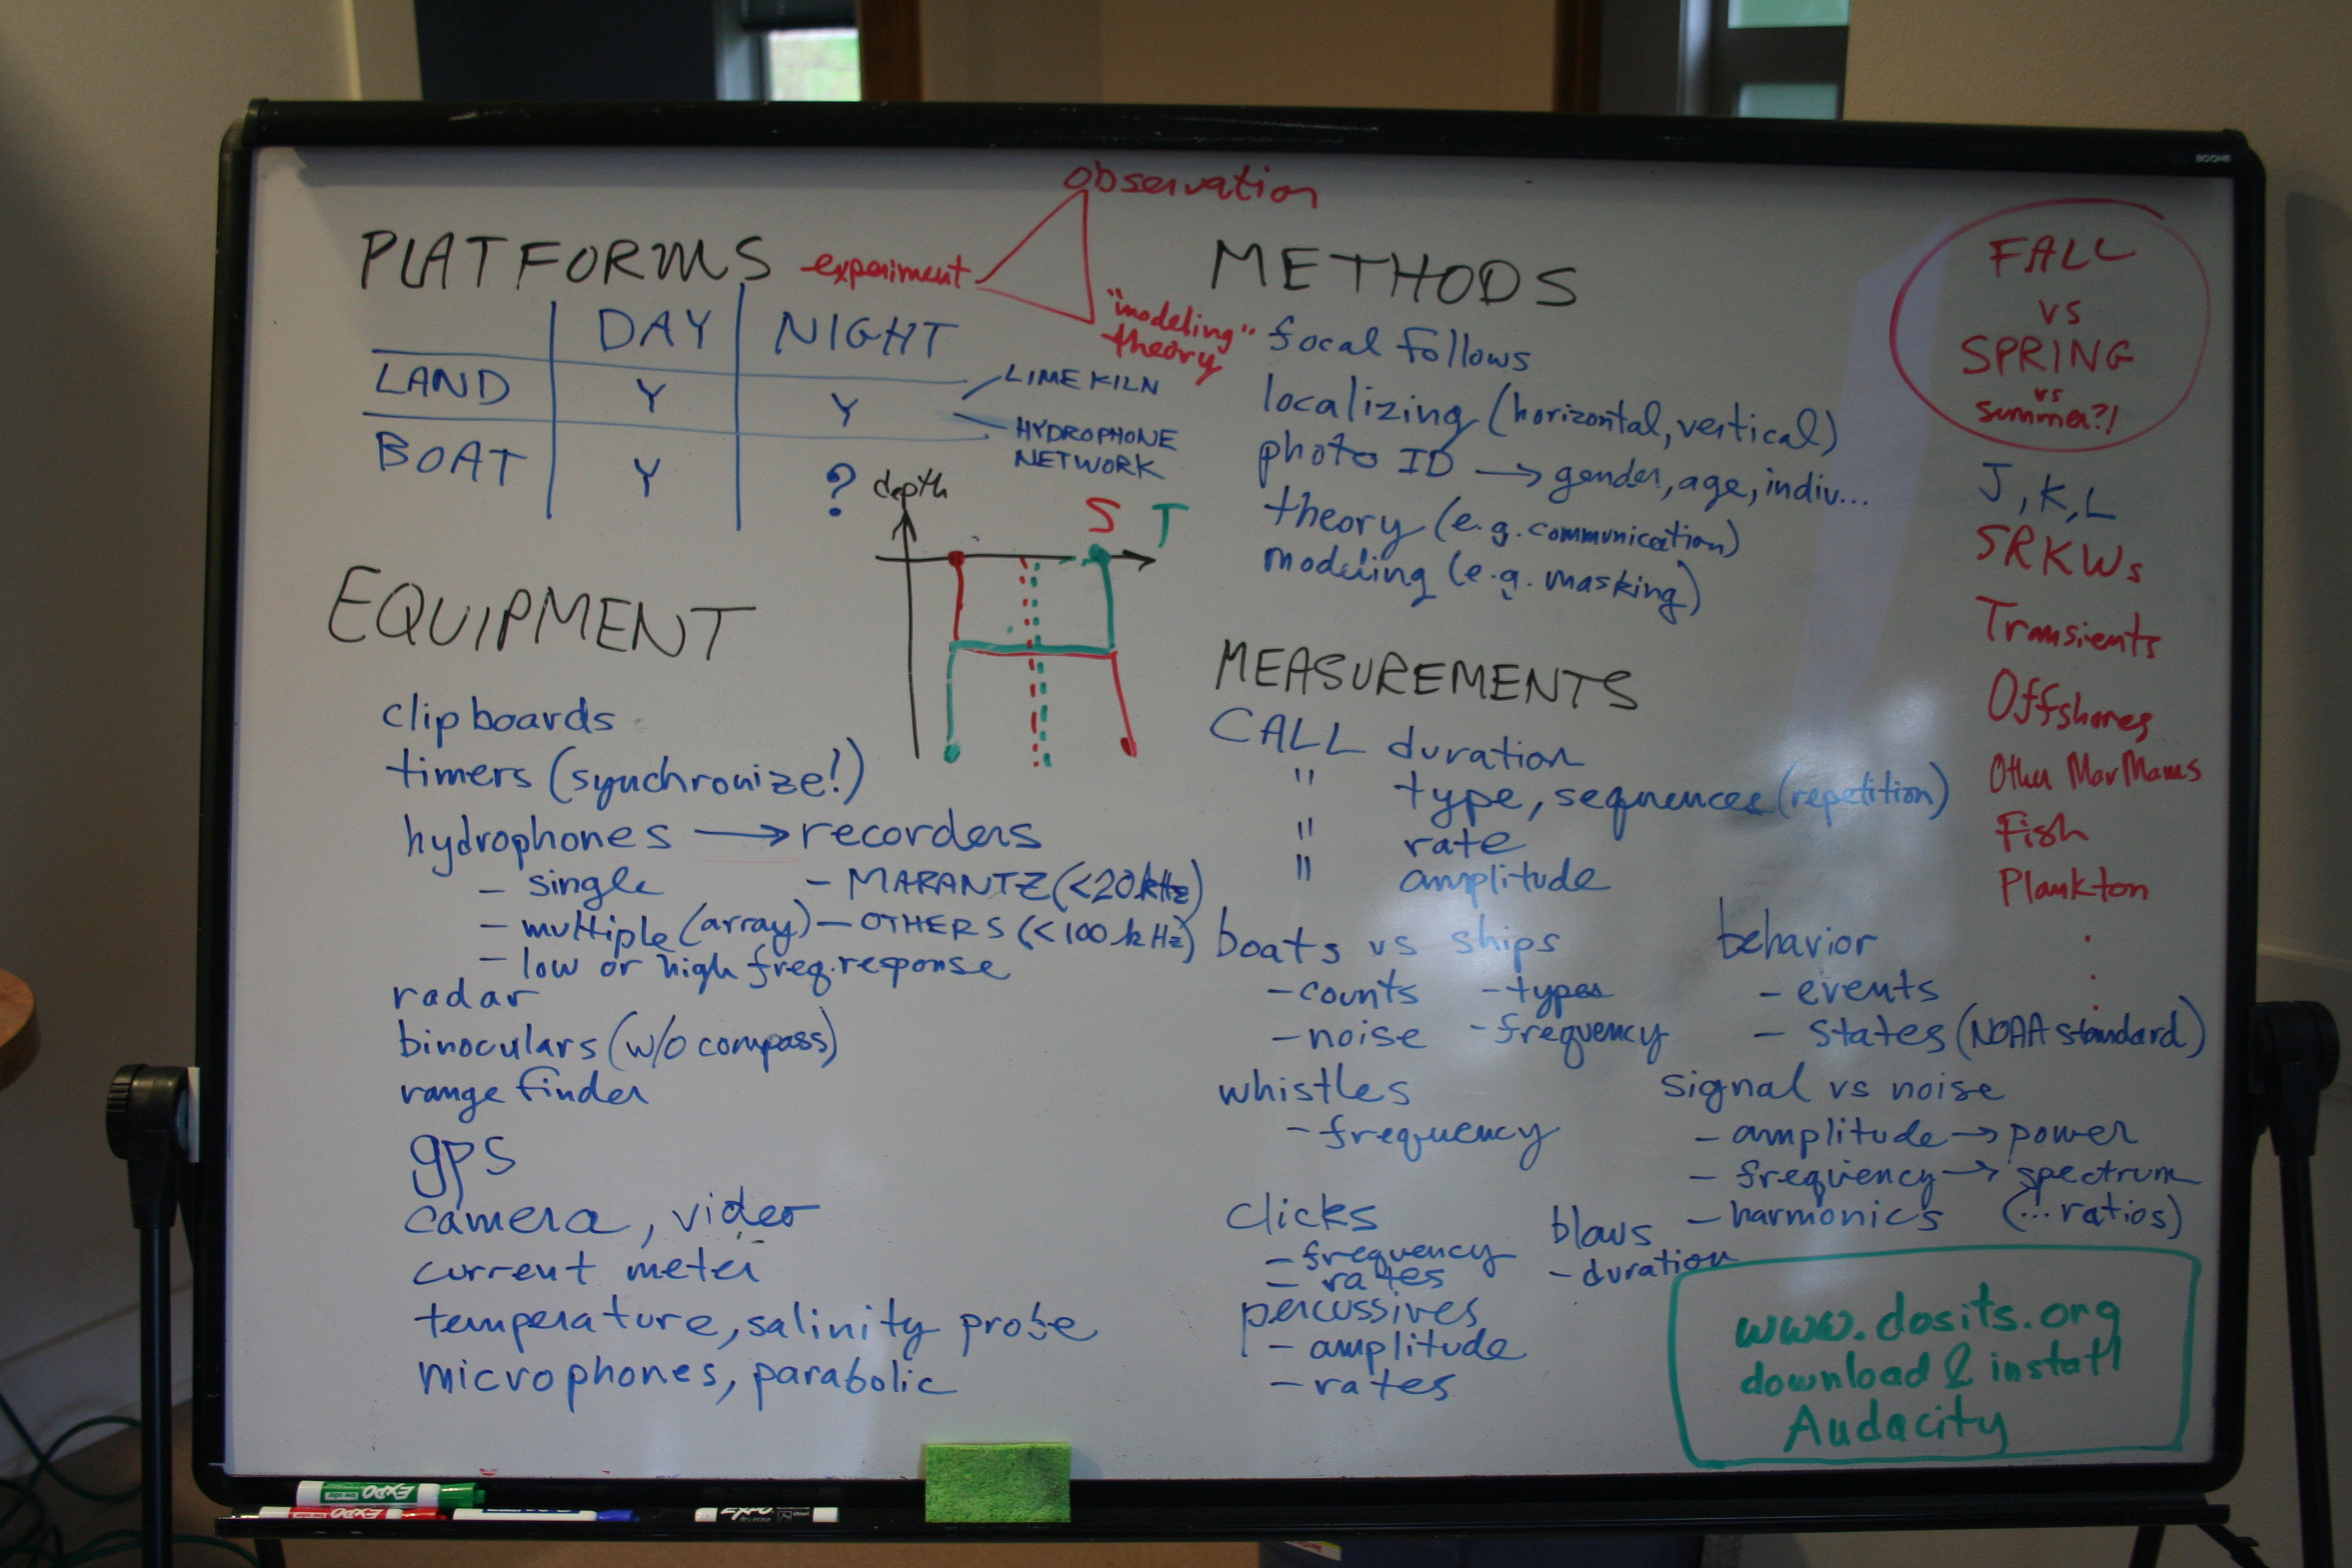 BOONE
observation
experiment
"modeling"
theory
PLATFORMS
DAY NIGHT
LAND Y Y
BOAT Y ?
LIME KILN
HYDROPHONE
NETWORK
depth
S T
EQUIPMENT
clipboards
timers (synchronize!)
hydrophones → recorders
- single - MARANTZ (<20 kHz)
- multiple (array) - OTHERS (<100 kHz)
- low or high freq. response
radar
binoculars (w/o compass)
range finder
gps
camera, video
current meter
temperature, salinity probe
microphones, parabolic
METHODS
focal follows
localizing (horizontal, vertical)
photo ID → gender, age, indiv...
theory (e.g. communication)
modeling (e.g. masking)
MEASUREMENTS
CALL duration
" type, sequences (repetition)
" rate
" amplitude
boats vs ships
- counts - types
- noise - frequency
whistles
- frequency
clicks
- frequency
- rates
percussives
- amplitude
- rates
blows
- duration
behavior
- events
- states (NOAA standard)
signal vs noise
- amplitude → power
- frequency → spectrum
- harmonics (... ratios)
FALL
vs
SPRING
vs
summer?!
J, K, L
SRKWs
Transients
Offshores
Other MarMams
Fish
Plankton
www.dosits.org
download & install
Audacity
EXPO
EXPO
EXPO